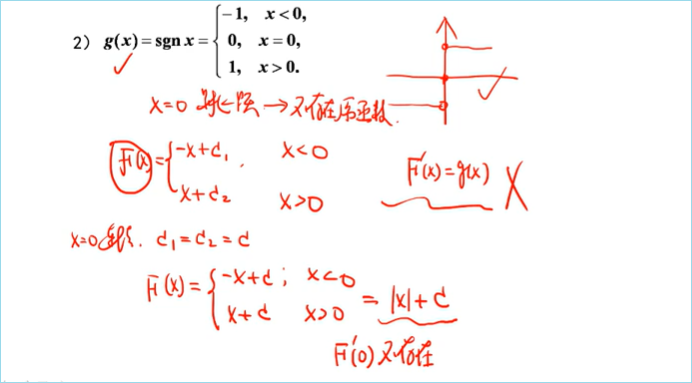 2) g(x)=sgn x= { -1, x<0,
0, x=0,
1, x>0.
x=0 跳跃 → 不存在原函数.
F(x)= { -x+c₁, x<0
x+c₂ x>0
F'(x)=g(x) ×
x=0连续. c₁=c₂=c
F(x)= { -x+c; x<0
x+c x>0 = |x|+c
F'(0) 不存在